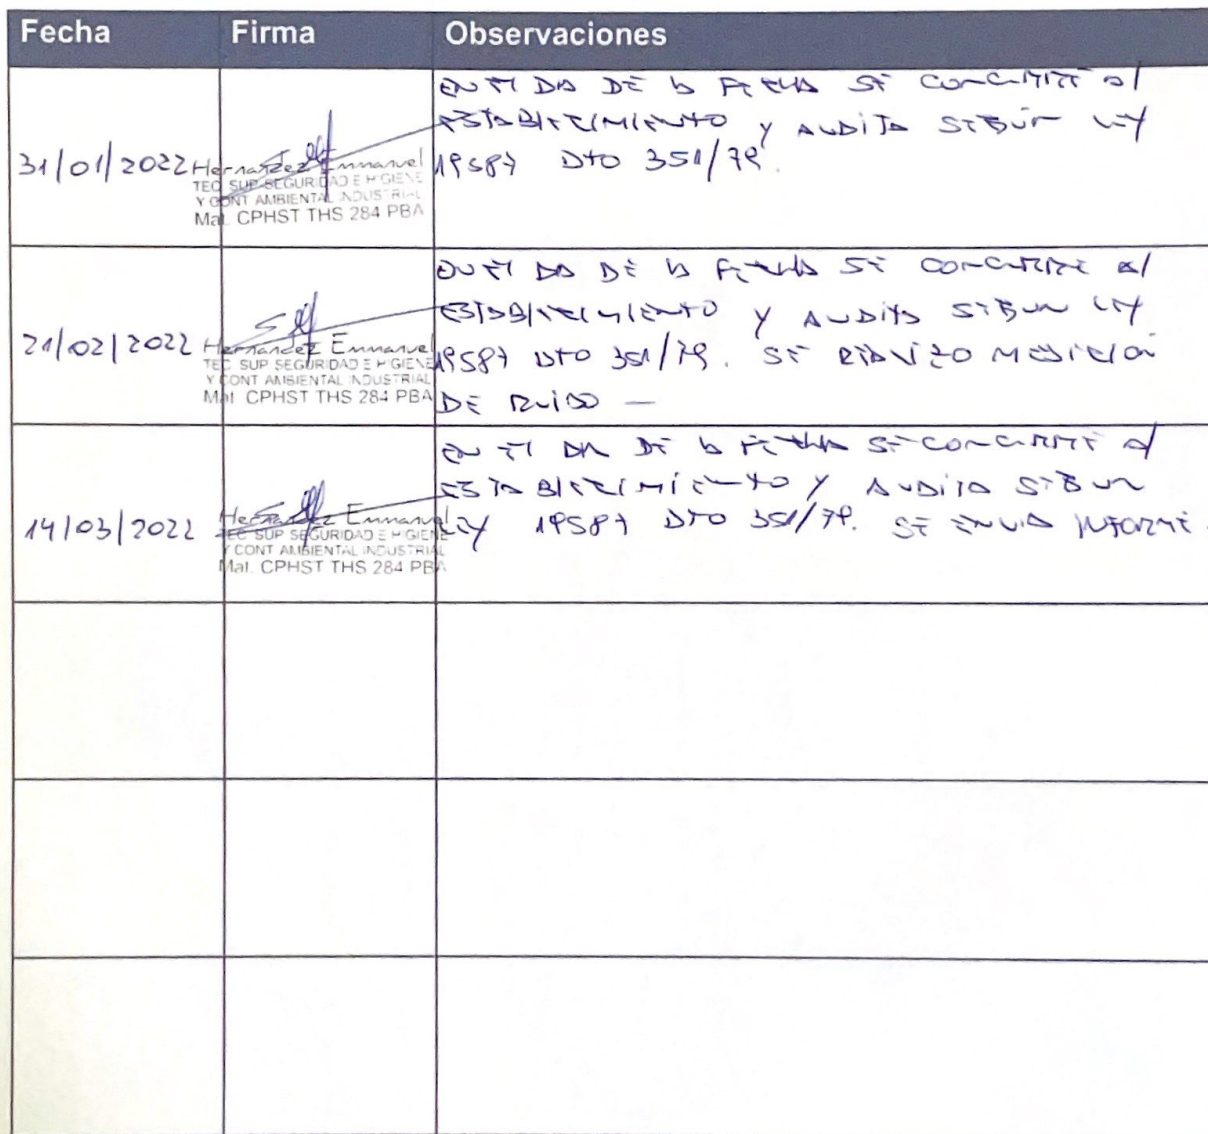 Fecha Firma Observaciones
31/01/2022
Hernandez Emmanuel
TEC SUP SEGURIDAD E HIGIENE
Y CONT AMBIENTAL INDUSTRIAL
Mat. CPHST THS 284 PBA
EN EL DIA DE LA FECHA SE CONCURRE AL
ESTABLECIMIENTO Y AUDITA SEGÚN LEY
19587 DTO 351/79.
21/02/2022
Hernandez Emmanuel
TEC SUP SEGURIDAD E HIGIENE
Y CONT AMBIENTAL INDUSTRIAL
Mat. CPHST THS 284 PBA
EN EL DIA DE LA FECHA SE CONCURRE AL
ESTABLECIMIENTO Y AUDITA SEGUN LEY
19587 DTO 351/79. SE REALIZO MEDICION
DE RUIDO —
14/03/2022
Hernandez Emmanuel
TEC SUP SEGURIDAD E HIGIENE
Y CONT AMBIENTAL INDUSTRIAL
Mat. CPHST THS 284 PBA
EN EL DIA DE LA FECHA SE CONCURRE AL
ESTABLECIMIENTO Y AUDITA SEGUN
LEY 19587 DTO 351/79. SE ENVIA INFORME.